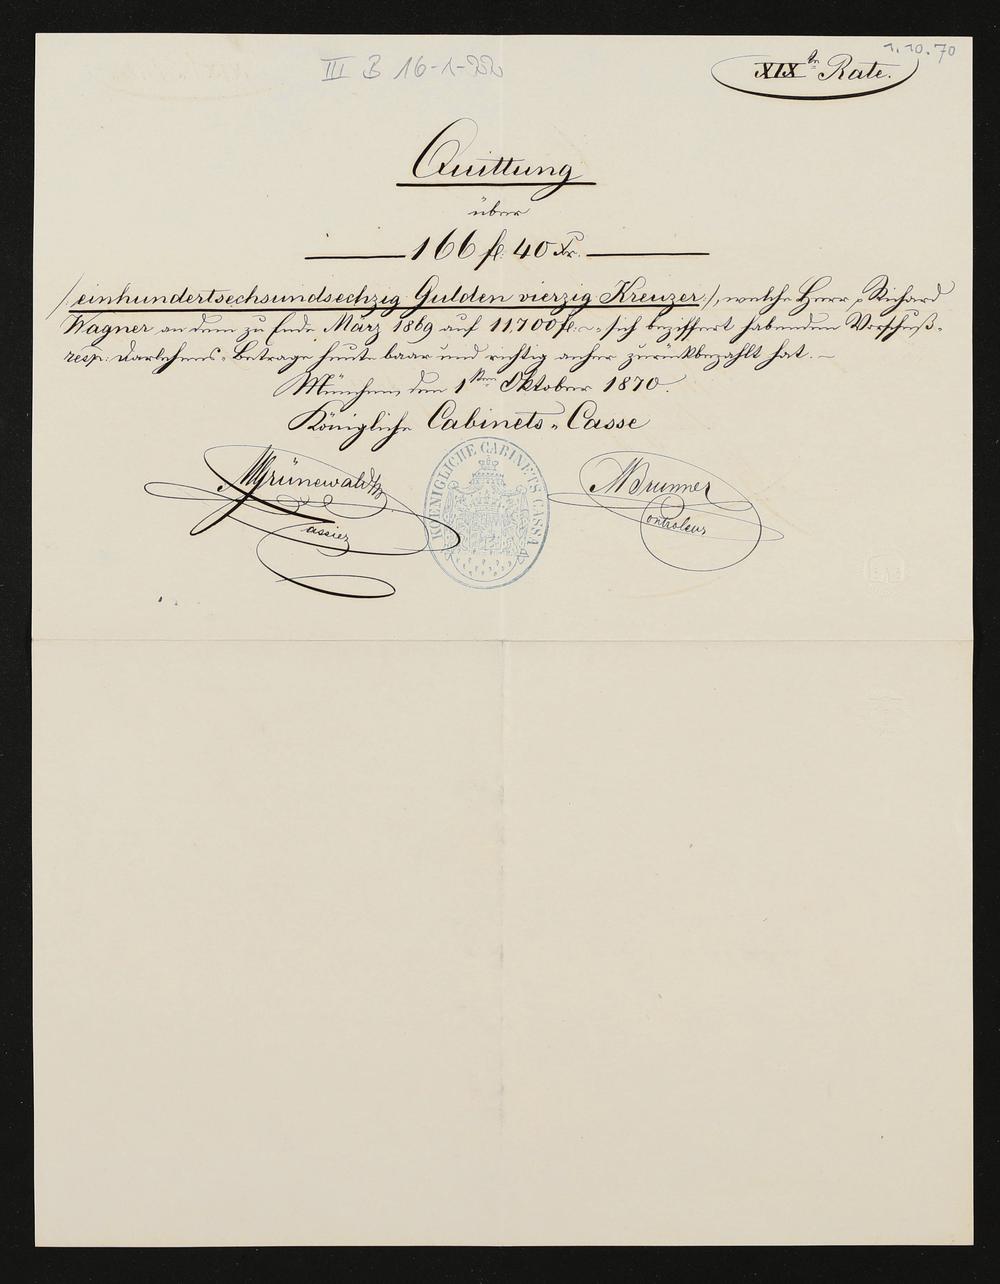 1.10.70
III B 16-1-22
XIX te Rate.
Quittung
über
166 fl. 40 Kr.
/: einhundertsechsundsechzig Gulden vierzig Kreuzer :/, welche Herr Richard
Wagner an dem zu Ende März 1869 auf 11700 fl. sich beziffert habenden Vorschuß-
resp: Darlehens-Betrage heute baar und richtig anher zurückbezahlt hat. –
München, den 1ten Oktober 1870.
Königliche Cabinets-Casse
Grünewald
Cassier
KOENIGLICHE CABINETS CASSA
Brunner
Controleur